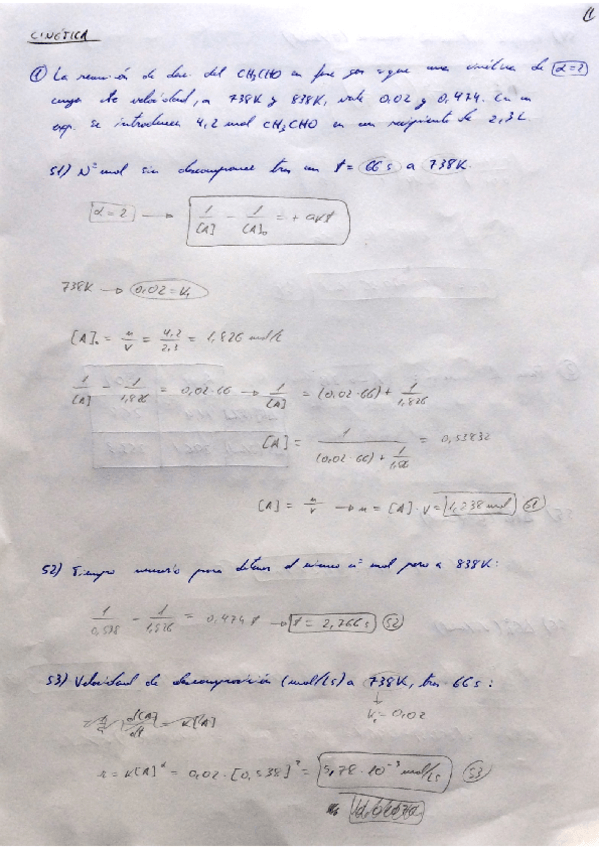 11
CINÉTICA
① La reacción de desc del CH₃CHO en fase gas sigue una cinética de α=2
cuya cte velocidad, a 738K y 838K, vale 0,02 y 0,474. En un
exp. se introducen 4,2 mol CH₃CHO en un recipiente de 2,3L
S1) Nº mol sin descomponer tras un t = 66 s a 738K.
α=2 → 1/[A] - 1/[A]₀ = + akt
738K → 0,02 = K₁
[A]₀ = n/V = 4,2/2,3 = 1,826 mol/L
1/[A] - 1/1,826 = 0,02·66 → 1/[A] = (0,02·66) + 1/1,826
[A] = 1/((0,02·66) + 1/1,826) = 0,53832
[A] = n/V → n = [A]·V = 1,238 mol S1
S2) Tiempo necesario para obtener el mismo nº mol pero a 838K:
1/0,538 - 1/1,826 = 0,474·t → t = 2,766 s S2
S3) Velocidad de descomposición (mol/Ls) a 738K, tras 66 s:
K₁ = 0,02
d[A]/dt = K[A]
r = K[A]^α = 0,02·[0,538]² = 5,78·10⁻³ mol/Ls S3